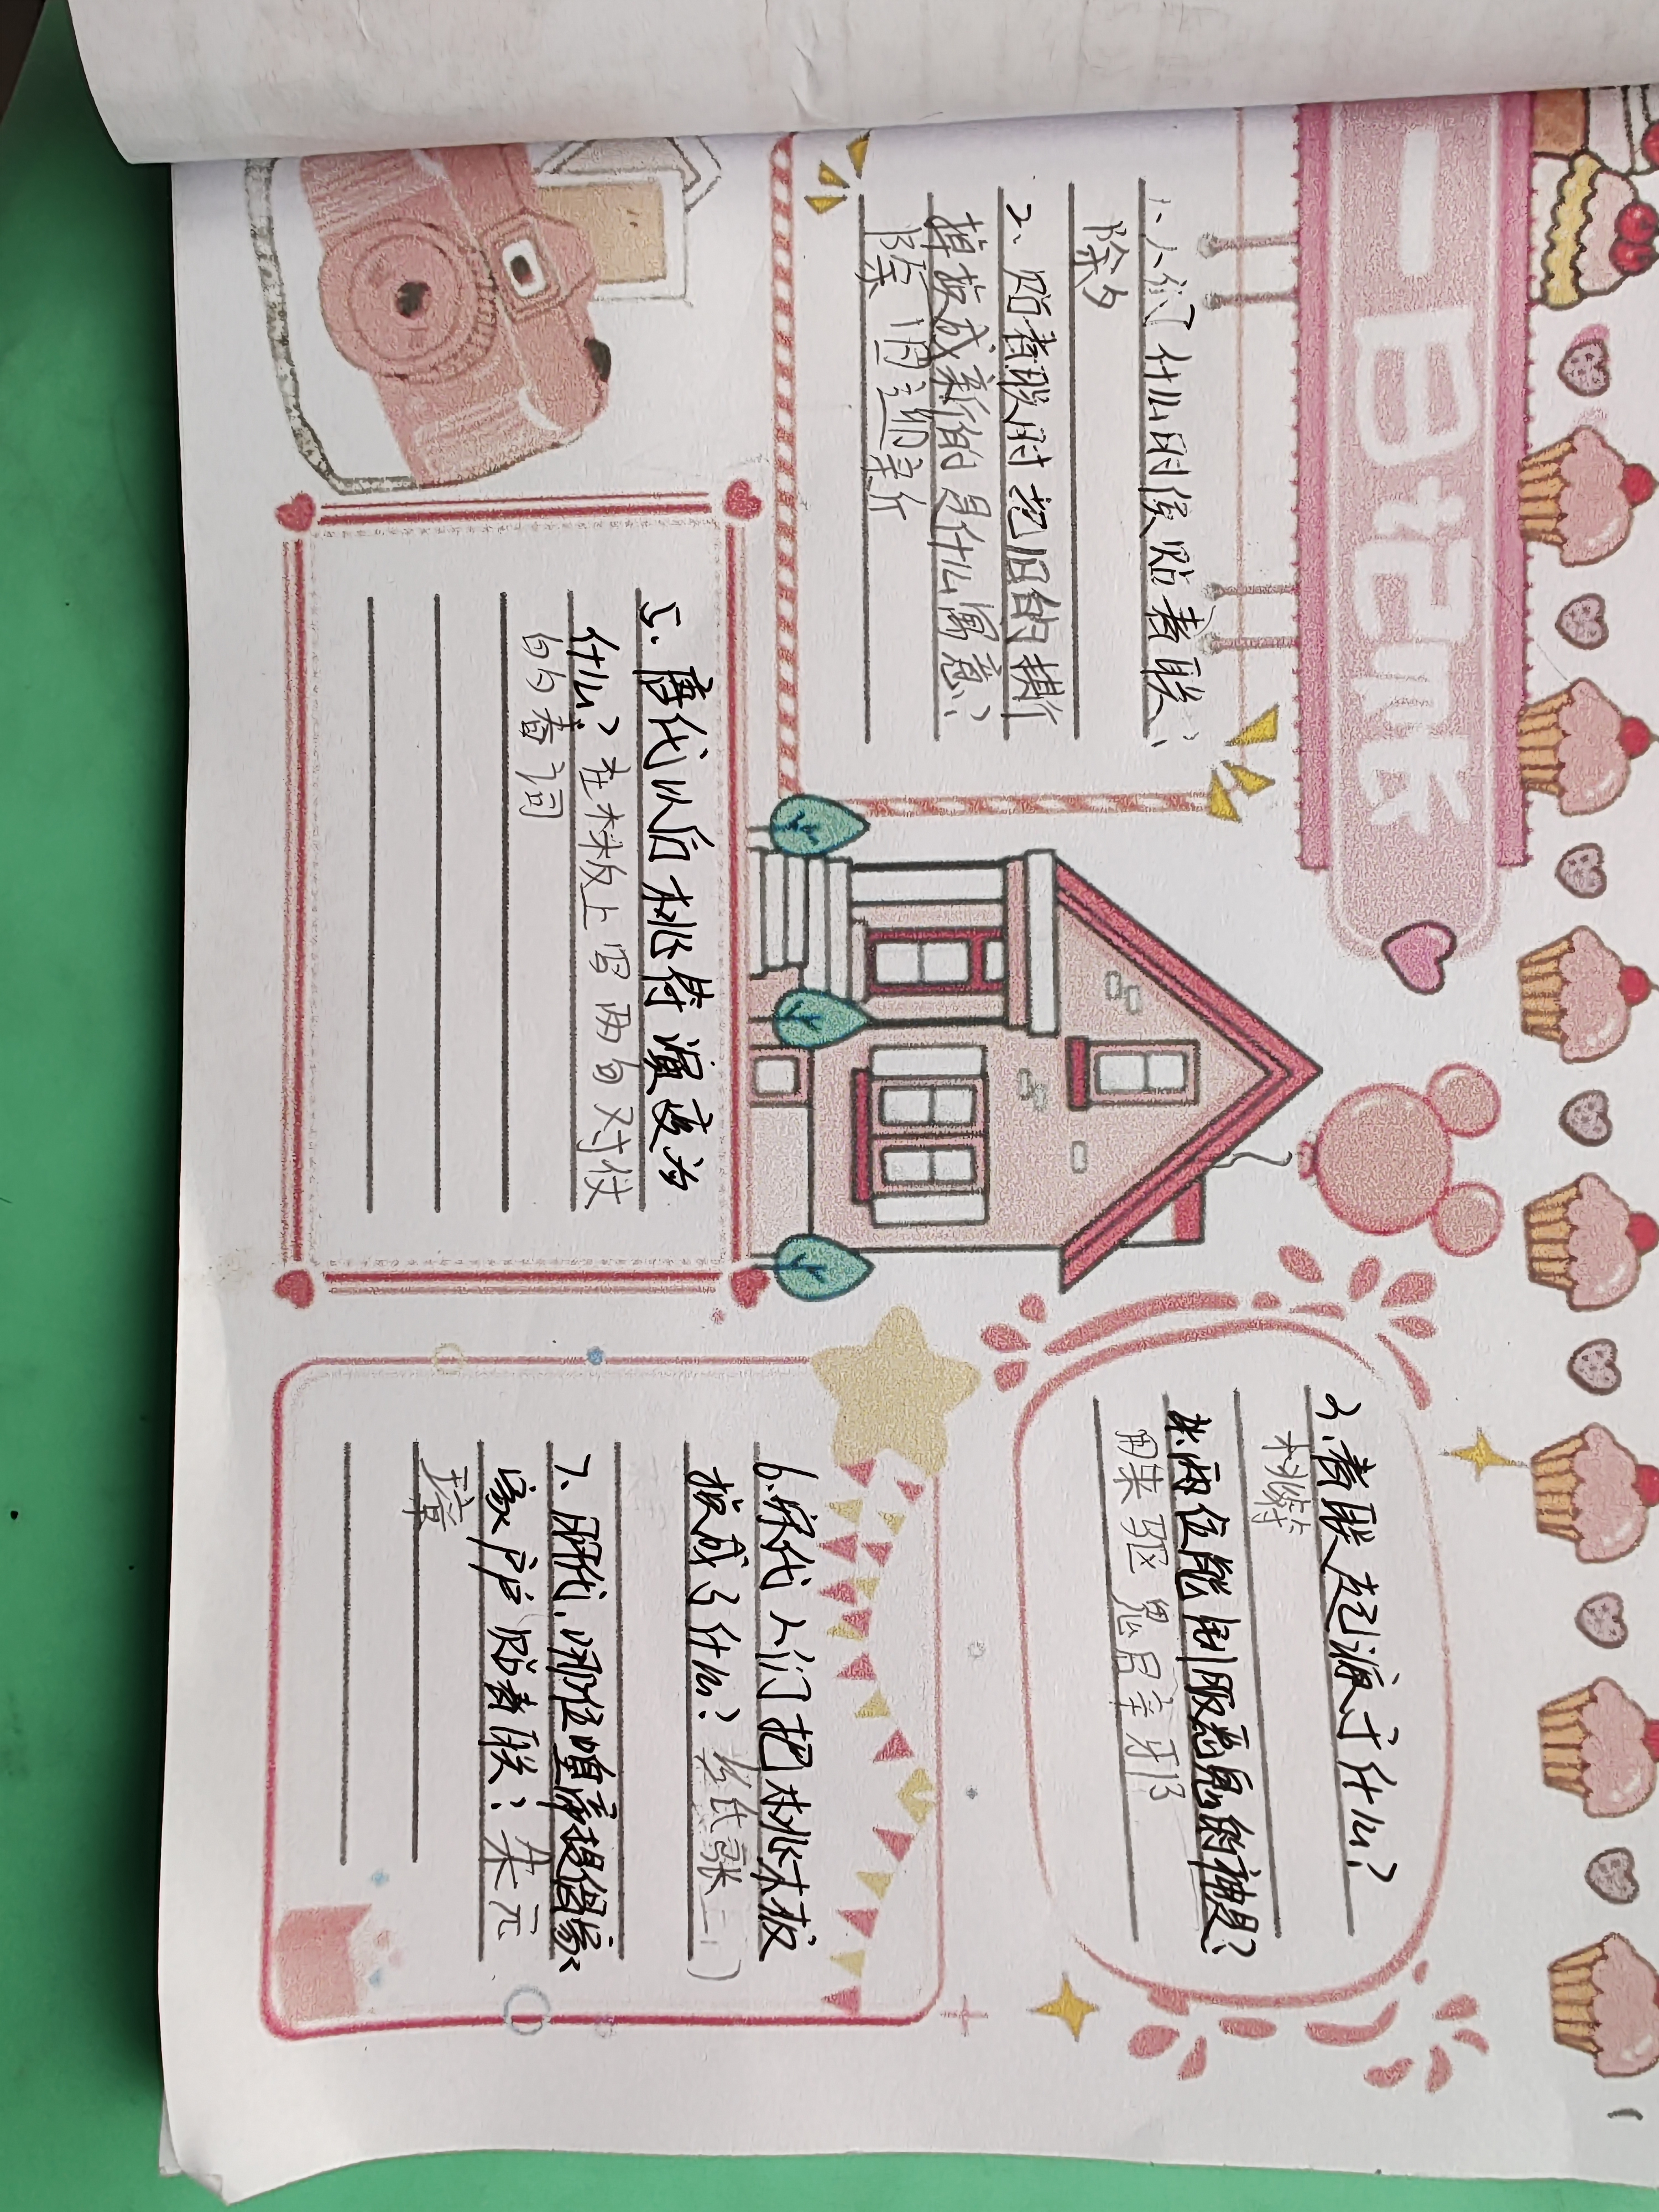 一日记录
1、人们什么时候贴春联?
除夕
2、贴春联时把旧的撕
掉换成新的是什么寓意?
除旧迎新
3.春联起源于什么?
桃符
4.两位能制服恶鬼的神是?
驱鬼
5.唐代以后桃符演变为
什么?在木板上写两句对仗
的春词
6.宋代人们把桃木板
换成了什么?纸张
7.明代,哪位皇帝提倡家
家户户贴春联?朱元
璋